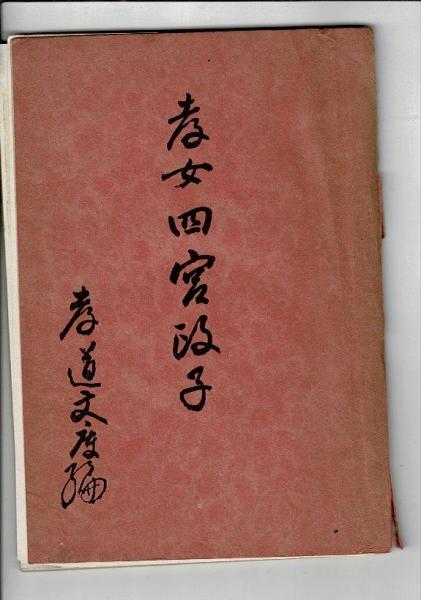 孝女四宮政子
孝道文庫編